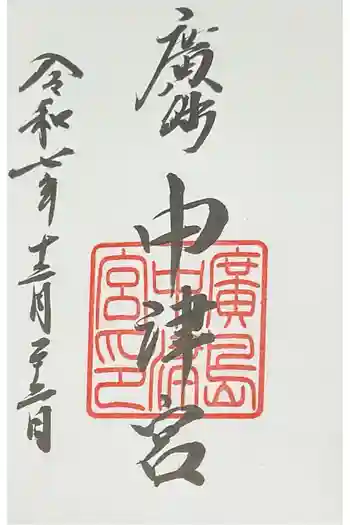 廣島
中津宮
令和七年十二月二十二日
廣島
中津
宮印